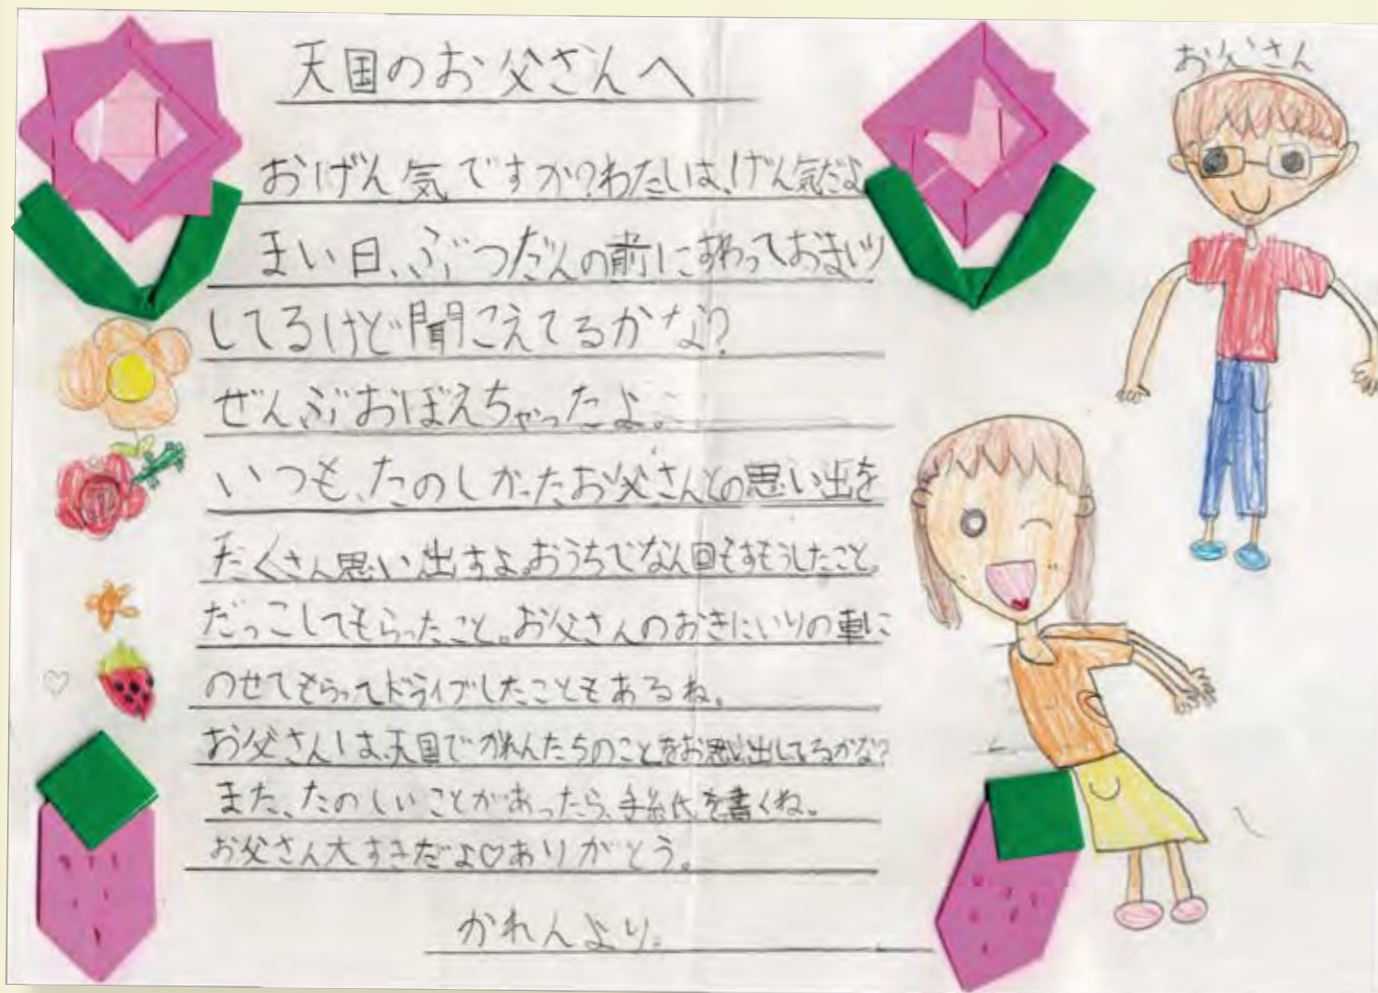 天国のお父さんへ
お父さん
おげん気ですか?わたしは、げん気だよ
まい日、ぶつだんの前にすわっておまいり
してるけど聞こえてるかな?
ぜんぶおぼえちゃったよ。
いつも、たのしかったお父さんとの思い出を
たくさん思い出すよ。おうちでなん回もすもうしたこと。
だっこしてもらったこと。お父さんのおきにいりの車に
のせてもらってドライブしたこともあるね。
お父さんは、天国でかれんたちのことをお思い出してるかな?
また、たのしいことがあったら、手紙を書くね。
お父さん大すきだよ♡ありがとう。
かれんより。